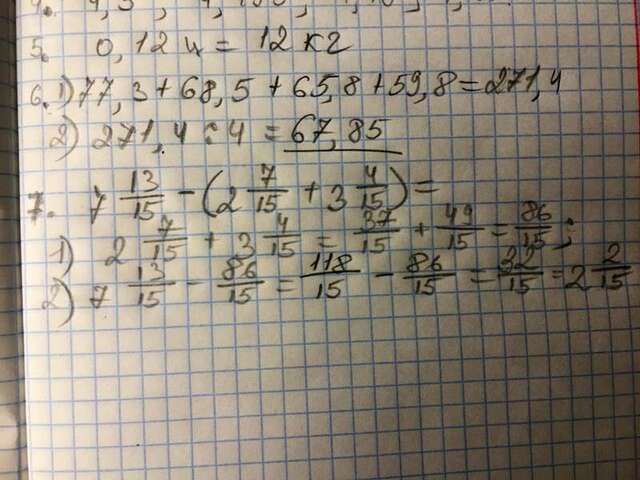 5. 0,12 ц = 12 кг
6. 1) 77,3 + 68,5 + 65,8 + 59,8 = 271,4
2) 271,4 : 4 = 67,85
7. 7 13/15 - (2 7/15 + 3 4/15) =
1) 2 7/15 + 3 4/15 = 37/15 + 49/15 = 86/15;
2) 7 13/15 - 86/15 = 118/15 - 86/15 = 32/15 = 2 2/15